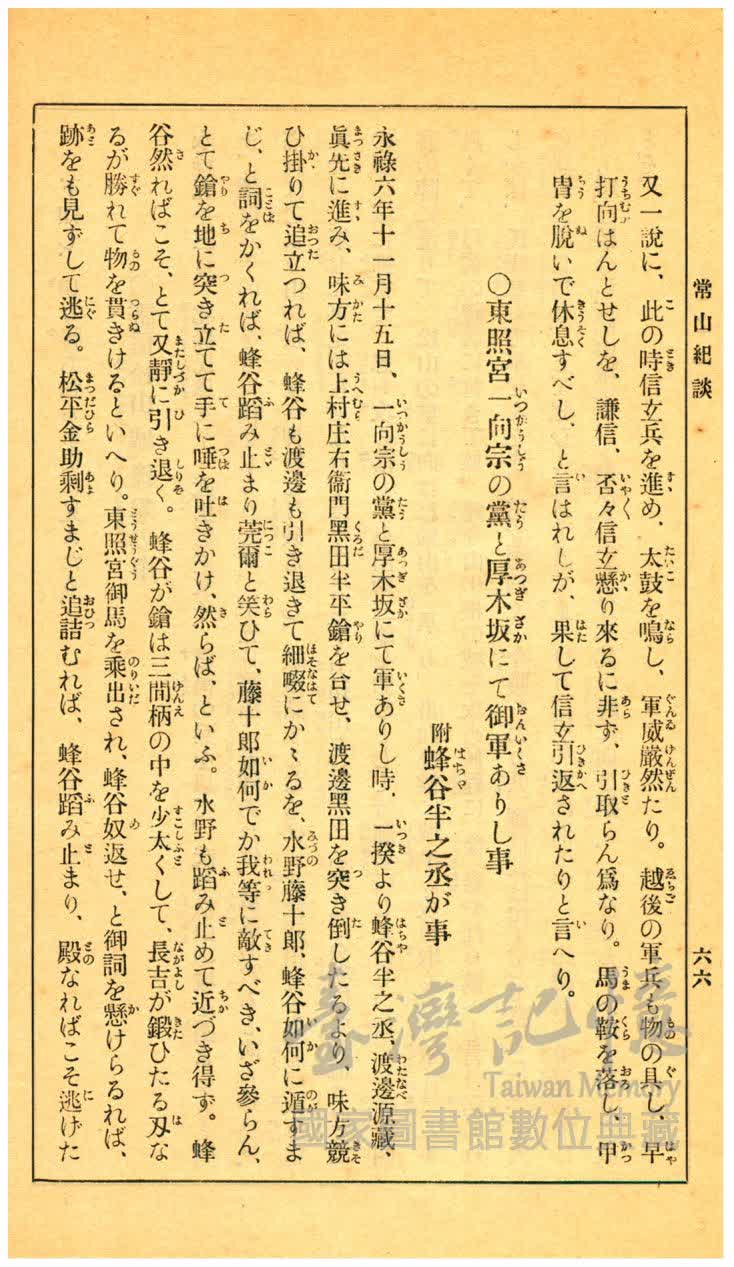 常山紀談
六六
又一說に、此の時信玄兵を進め、太鼓を鳴し、軍威嚴然たり。越後の軍兵も物の具し、早
打向はんとせしを、謙信、否々信玄懸り來るに非ず、引取らん爲なり。馬の鞍を落し、甲
冑を脱いで休息すべし、と言はれしが、果して信玄引返されたりと言へり。
○東照宮一向宗の黨と厚木坂にて御軍ありし事
附蜂谷半之丞が事
永祿六年十一月十五日、一向宗の黨と厚木坂にて軍ありし時、一揆より蜂谷半之丞、渡邊源藏、
眞先に進み、味方には上村庄右衞門黑田半平鎗を合せ、渡邊黑田を突き倒したるより、味方競
ひ掛りて追立つれば、蜂谷も渡邊も引き退きて細畷にかゝるを、水野藤十郞、蜂谷如何に遁すま
じ、と詞をかくれば、蜂谷蹈み止まり莞爾と笑ひて、藤十郞如何でか我等に敵すべき、いざ參らん、
とて鎗を地に突き立てて手に唾を吐きかけ、然らば、といふ。水野も蹈み止めて近づき得ず。蜂
谷然ればこそ、とて又靜に引き退く。蜂谷が鎗は三間柄の中を少太くして、長吉が鍛ひたる刄な
るが勝れて物を貫きけるといへり。東照宮御馬を乘出され、蜂谷奴返せ、と御詞を懸けらるれば、
跡をも見ずして逃る。松平金助剩すまじと追詰むれば、蜂谷蹈み止まり、殿なればこそ逃げた
臺灣記憶
Taiwan Memory
國家圖書館數位典藏